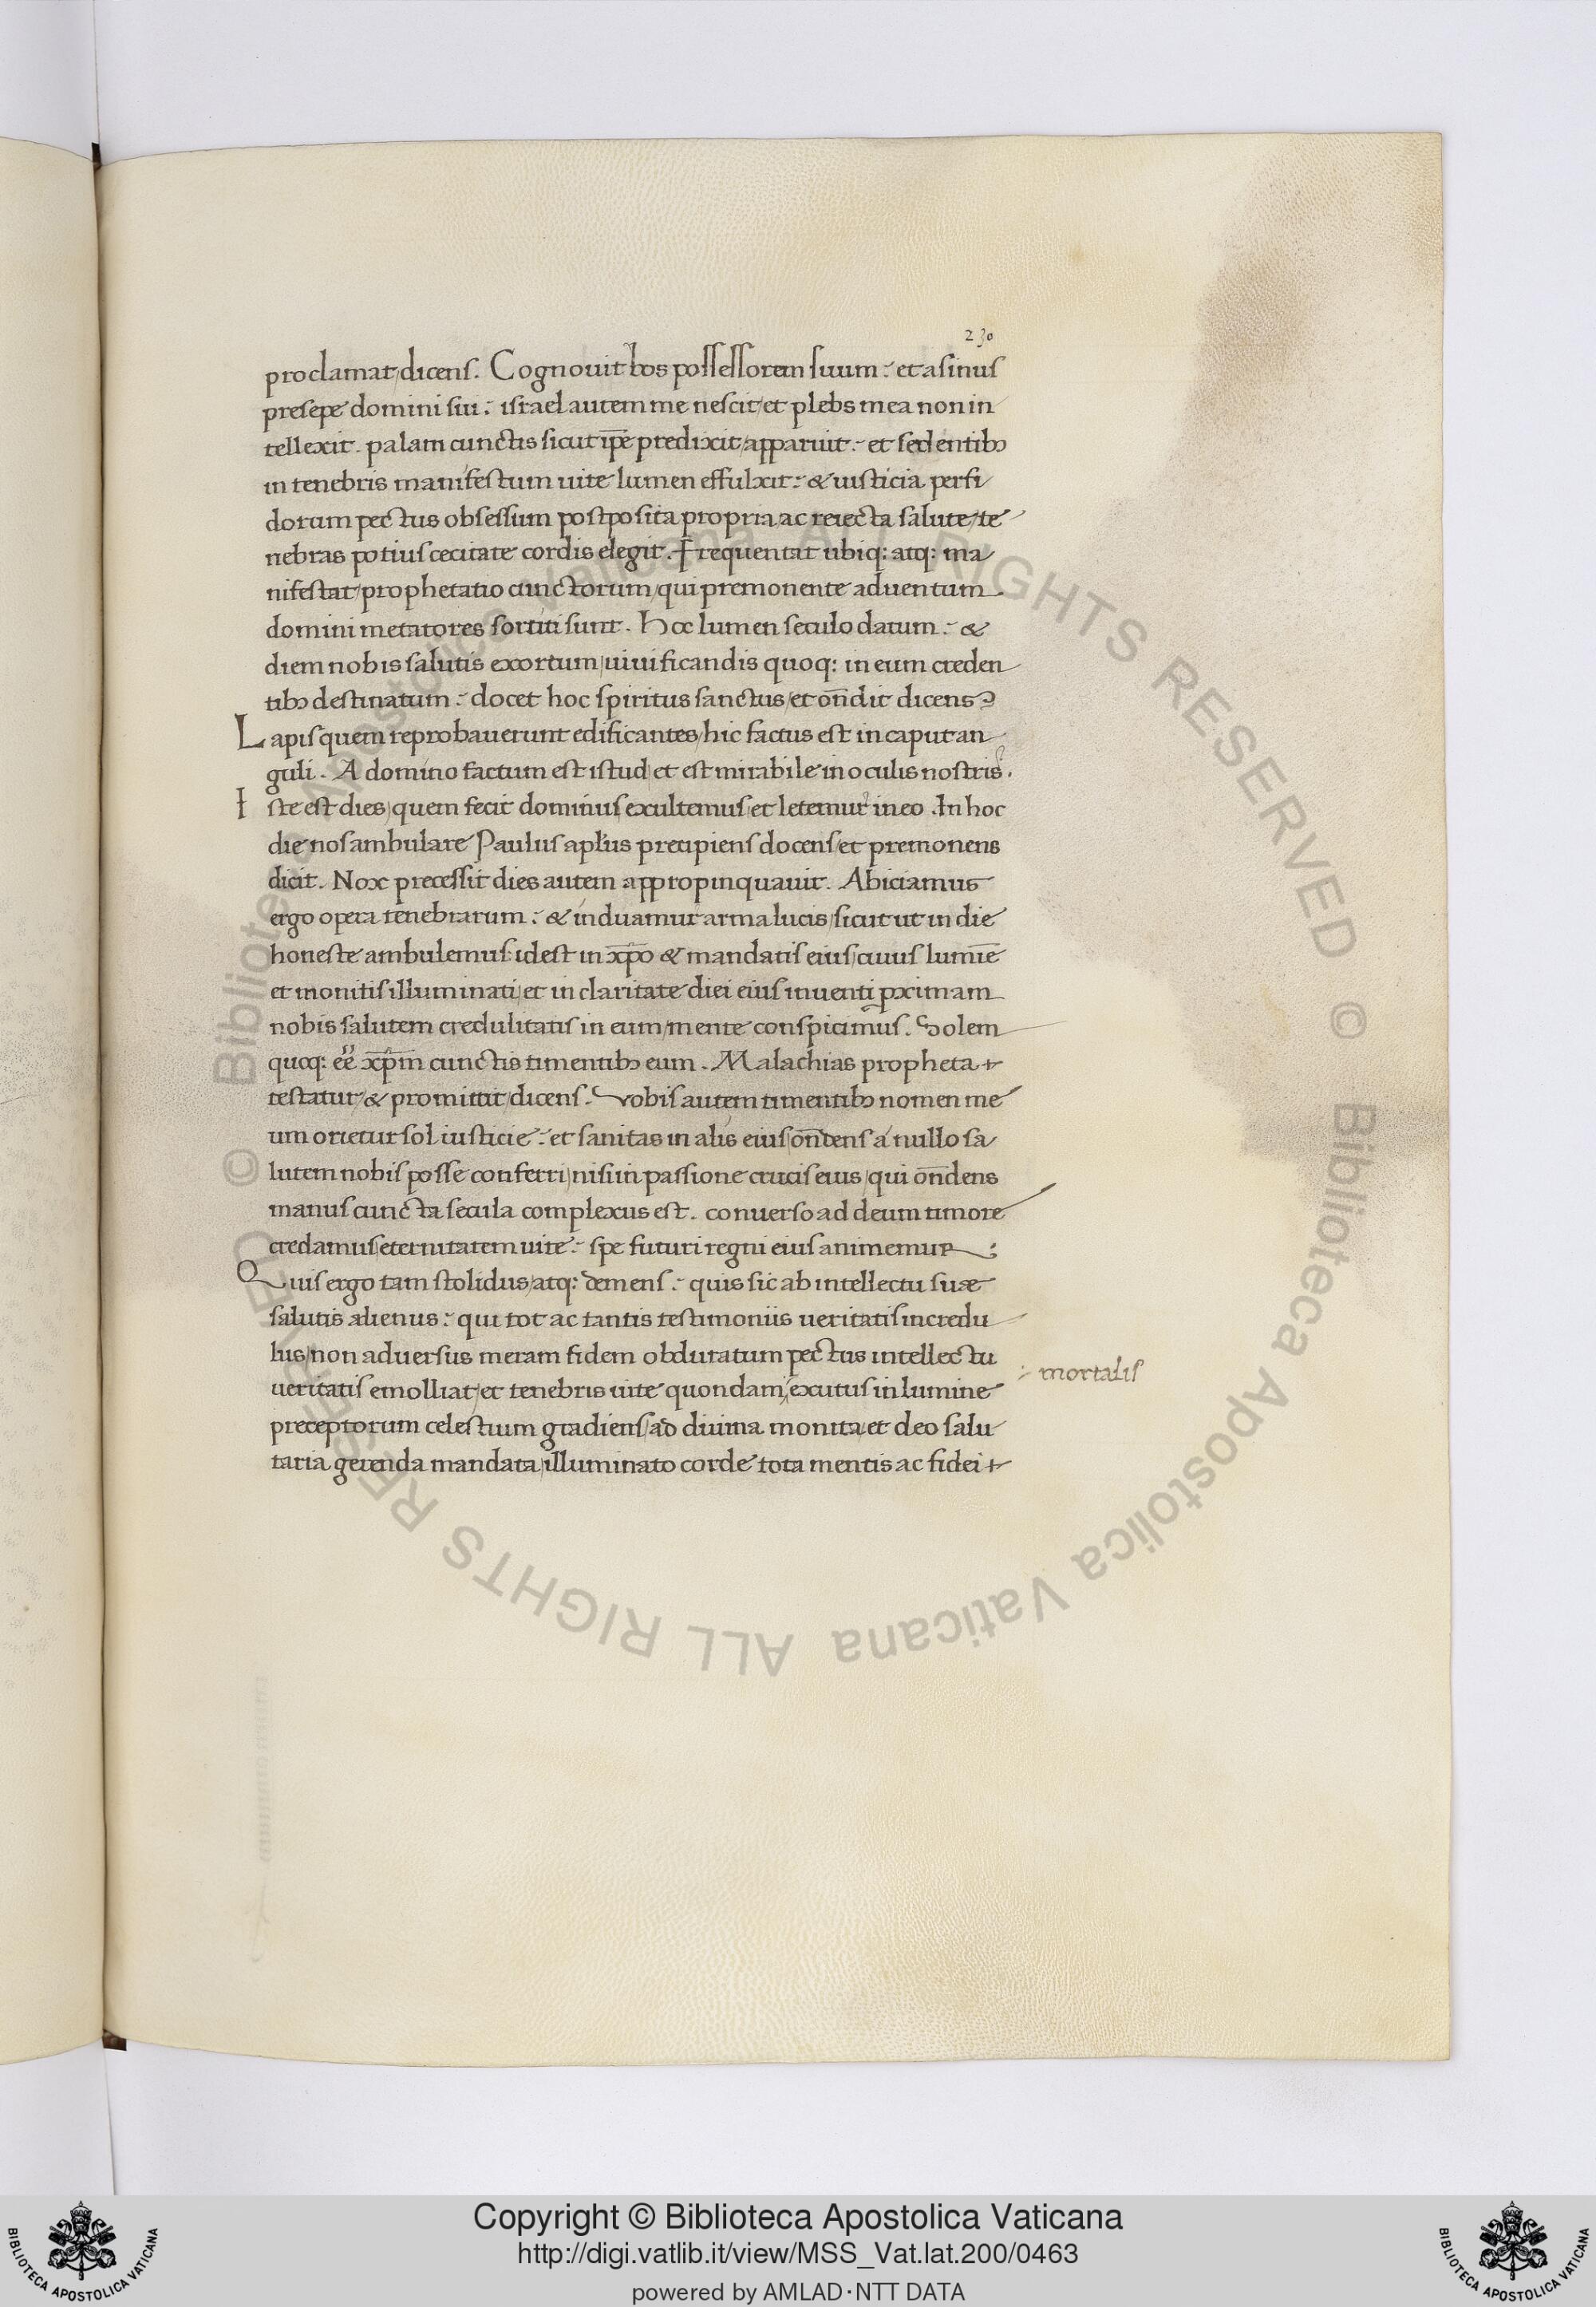 230
proclamat/dicens. Cognouit bos possessorem suum: et asinus
presepe domini sui: israel autem me nescit/et plebs mea non in
tellexit. palam cunctis sicut ip̅e predixit/apparuit: et sedentibꝫ
in tenebris manifestum uite lumen effulxit: & iusticia perfi
dorum pectus obsessum postposita propria ac reiecta salute/te
nebras potius cecitate cordis elegit. Frequentat ubiq: atq: ma
nifestat/prophetatio cunctorum/qui premonente aduentum
domini metatores sortiti sunt. Hoc lumen seculo datum: &
diem nobis salutis exortum/uiuificandis quoq: in eum creden
tibꝫ destinatum: docet hoc spiritus sanctus/et on̅dit dicens
Lapis quem reprobauerunt edificantes/hic factus est in caput an
guli. A domino factum est istud/et est mirabile in oculis nostris.
Iste est dies/quem fecit dominus/exultemus/et letemur in eo. In hoc
die nos ambulare Paulus apl'us precipiens docens/et premonens
dicit. Nox precessit dies autem appropinquauit. Abiciamus
ergo opera tenebrarum: & induamur arma lucis/sicut ut in die
honeste ambulemus: idest in xp̅o & mandatis eius/cuius lumi̅e
et monitis illuminati/et in claritate diei eius inuenti ꝓximam
nobis salutem credulitatis in eum/mente conspicimus. Solem
quoq: ee̅ xp̅m cunctis timentibꝫ eum. Malachias propheta
testatur/& promittit/dicens. Vobis autem timentibꝫ nomen me
um orietur sol iusticie: et sanitas in alis eius/on̅dens a nullo sa
lutem nobis posse conferri/nisi in passione crucis eius/qui on̅dens
manus cuncta secula complexus est. conuerso ad deum timore
credamus/eternitatem uite: spe futuri regni eius animemur:
Quis ergo tam stolidus/atq: demens: quis sic ab intellectu suæ
salutis alienus: qui tot ac tantis testimoniis ueritatis incredu
lus/non aduersus meram fidem obduratum pectus intellectu
ueritatis emolliat/et tenebris uite quondam/excutus in lumine
preceptorum celestium gradiens/ad diuina monita/et deo salu
taria gerenda mandata/illuminato corde tota mentis ac fidei
mortalis
© Biblioteca Apostolica Vaticana ALL RIGHTS RESERVED © Biblioteca Apostolica Vaticana ALL RIGHTS RESERVED
Copyright © Biblioteca Apostolica Vaticana
http://digi.vatlib.it/view/MSS_Vat.lat.200/0463
powered by AMLAD·NTT DATA
BIBLIOTECA APOSTOLICA VATICANA
BIBLIOTECA APOSTOLICA VATICANA